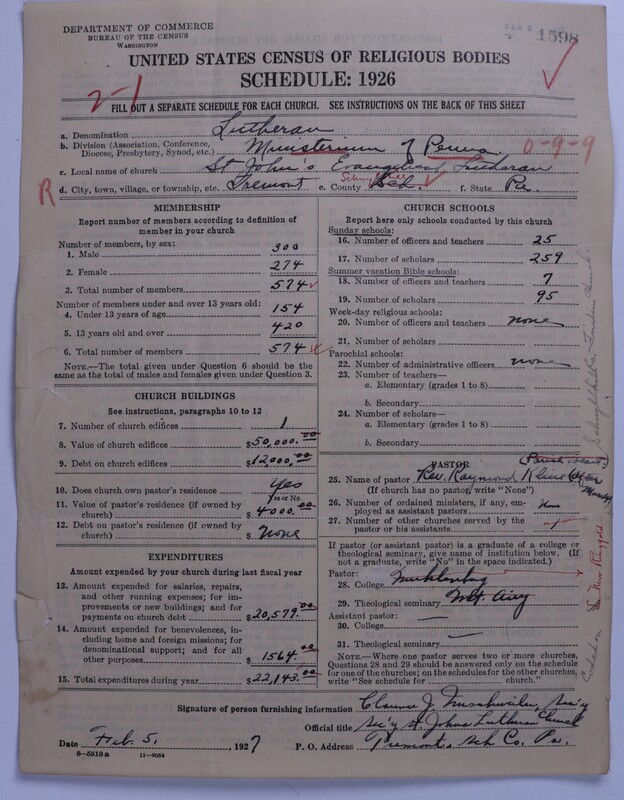 DEPARTMENT OF COMMERCE
BUREAU OF THE CENSUS
WASHINGTON
1598
UNITED STATES CENSUS OF RELIGIOUS BODIES
SCHEDULE: 1926
2-1
FILL OUT A SEPARATE SCHEDULE FOR EACH CHURCH. SEE INSTRUCTIONS ON THE BACK OF THIS SHEET
a. Denomination Lutheran
b. Division (Association, Conference, Diocese, Presbytery, Synod, etc.) Ministerium of Penna. 0-9-9
c. Local name of church St John's Evangelical Lutheran
R d. City, town, village, or township, etc. Tremont e. County Sch. Schuylkill f. State Pa.
MEMBERSHIP
Report number of members according to definition of
member in your church
Number of members, by sex:
1. Male 300
2. Female 274
3. Total number of members 574
Number of members under and over 13 years old:
4. Under 13 years of age 154
5. 13 years old and over 420
6. Total number of members 574
NOTE.—The total given under Question 6 should be
same as the total of males and females given under Question 3.
CHURCH BUILDINGS
See instructions, paragraphs 10 to 12
7. Number of church edifices 1
8. Value of church edifices $50,000.00
9. Debt on church edifices $12,000.00
10. Does church own pastor's residence Yes
Yes or No
11. Value of pastor's residence (if owned by
church) $4000.00
12. Debt on pastor's residence (if owned by
church) $None
EXPENDITURES
Amount expended by church during last fiscal year
13. Amount expended for salaries, repairs,
and other running expenses; for im-
provements or new buildings; and for
payments on church debt $20,579.00
14. Amount expended for benevolences, in-
cluding home and foreign missions; for
denominational support; and for all
other purposes $1564.00
15. Total expenditures during year $22,143.00
CHURCH SCHOOLS
Report here only schools conducted by this church
Sunday schools:
16. Number of officers and teachers 25
17. Number of scholars 259
Summer vacation Bible schools:
18. Number of officers and teachers 7
19. Number of scholars 95
Week-day religious schools:
20. Number of officers and teachers none
21. Number of scholars
Parochial schools:
22. Number of administrative officers none
23. Number of teachers—
a. Elementary (grades 1 to 8)
b. Secondary
24. Number of scholars—
a. Elementary (grades 1 to 8)
b. Secondary
PASTOR
25. Name of pastor Rev. Raymond Kline
(If church has no pastor, write "None")
26. Number of ordained ministers, if any, em-
ployed as assistant pastors None
27. Number of other churches served by the
pastor or his assistants 1
If pastor (or assistant pastor) is a graduate of a college or
theological seminary, give name of institution below. (If
not a graduate, write "No" in the space indicated.)
Pastor:
28. College Muhlenberg
29. Theological seminary Mt. Airy
Assistant pastor:
30. College
31. Theological seminary
NOTE.—Where one pastor serves two or more churches,
Questions 28 and 29 should be answered only on the schedule
for one of the churches; on the schedules for the other churches,
write "See schedule for church."
Signature of person furnishing information Clarence J. Sec'y
Official title Sec'y St. Johns Lutheran Church
Date Feb 5, 1927 P. O. Address Tremont, Sch Co. Pa.
8-5518a 11-9054